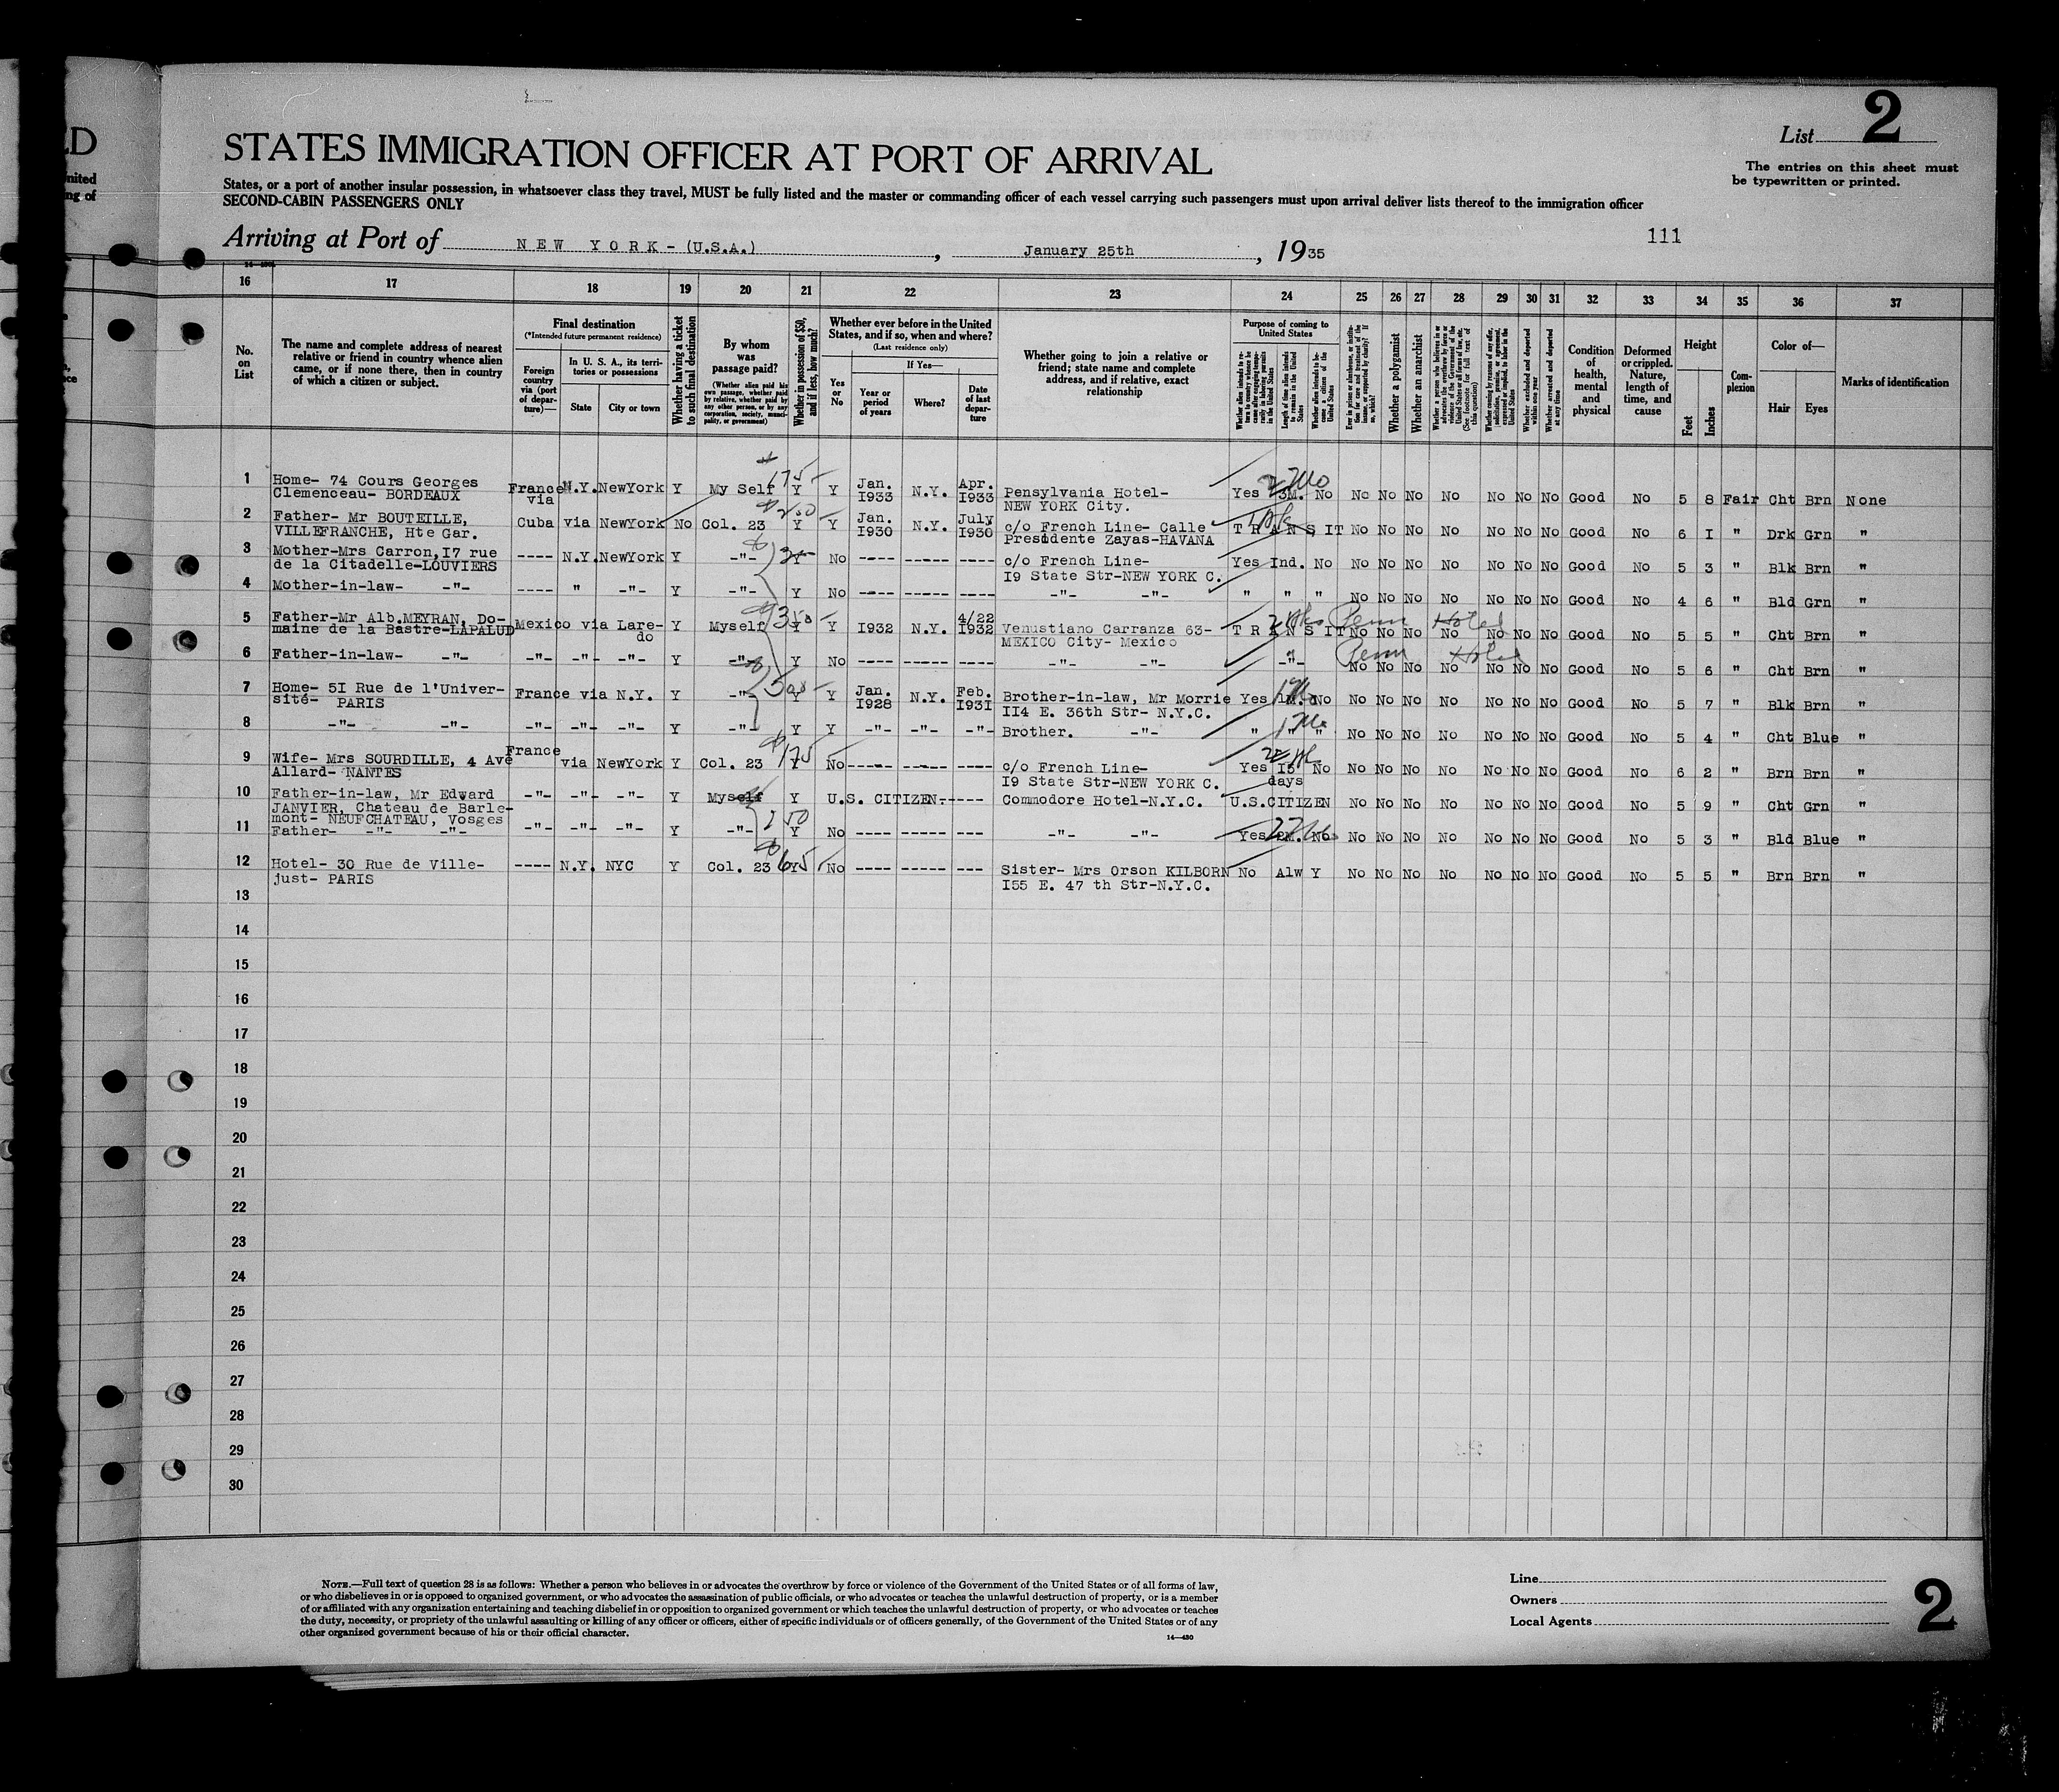 List 2
The entries on this sheet must
be typewritten or printed.
STATES IMMIGRATION OFFICER AT PORT OF ARRIVAL
States, or a port of another insular possession, in whatsoever class they travel, MUST be fully listed and the master or commanding officer of each vessel carrying such passengers must upon arrival deliver lists thereof to the immigration officer
SECOND-CABIN PASSENGERS ONLY
Arriving at Port of NEW YORK-(U.S.A.), January 25th, 1935
111
16 17 18 19 20 21 22 23 24 25 26 27 28 29 30 31 32 33 34 35 36 37
No. on List
The name and complete address of nearest
relative or friend in country whence alien
came, or if none there, then in country
of which a citizen or subject.
Final destination
(*Intended future permanent residence)
Foreign country via (port of departure)—
In U. S. A., its territories or possessions
State
City or town
Whether having a ticket to such final destination
By whom was passage paid?
(Whether alien paid his own passage, whether paid by relative, whether paid by any other person, or by any corporation, society, municipality, or government)
Whether in possession of $50, and if less, how much?
Whether ever before in the United
States, and if so, when and where?
(Last residence only)
Yes or No
If Yes—
Year or period of years
Where?
Date of last departure
Whether going to join a relative or
friend; state name and complete
address, and if relative, exact
relationship
Purpose of coming to United States
Length of time alien intends to remain in the United States
Whether alien intends to become a citizen of the United States
Whether a polygamist
Whether an anarchist
Whether excluded and deported within one year
Whether arrested and deported at any time
Condition of health, mental and physical
Deformed or crippled. Nature, length of time, and cause
Height
Feet
Inches
Complexion
Color of—
Hair
Eyes
Marks of identification
1 Home- 74 Cours Georges France N.Y. NewYork Y My Self 175- Y Y Jan. N.Y. Apr. 2 Mo
Clemenceau- BORDEAUX via I933 I933 Pensylvania Hotel- Yes 3M. No No No No No No No No Good No 5 8 Fair Cht Brn None
NEW YORK City.
2 Father- Mr BOUTEILLE, Cuba via NewYork No Col. 23 Y Y Jan. N.Y. July c/o French Line- Calle TRANSIT No No No No No No No Good No 6 I " Drk Grn "
VILLEFRANCHE, Hte Gar. I930 I930 Presidente Zayas-HAVANA
3 Mother-Mrs Carron,I7 rue ---- N.Y. NewYork Y -"- No ---- ----- ---- c/o French Line- Yes Ind. No No No No No No No No Good No 5 3 " Blk Brn "
de la Citadelle-LOUVIERS I9 State Str-NEW YORK C.
4 Mother-in-law- -"- ---- " -"- Y -"- Y No ---- ----- ---- -"- -"- " " " No No No No No No No Good No 4 6 " Bld Grn "
5 Father-Mr Alb.MEYRAN, Do- Mexico via Lare- Y Myself Y Y I932 N.Y. 4/22 Venustiano Carranza 63- TRANSIT Penn Hotel No No No No No No No Good No 5 5 " Cht Brn "
maine de la Bastre-LAPALUD do I932 MEXICO City- Mexico
6 Father-in-law- -"- -"- -"- -"- Y -"- Y No ---- ----- ---- -"- -"- -"- Penn Hotel No No No No No No No Good No 5 6 " Cht Brn "
7 Home- 5I Rue de l'Univer- France via N.Y. Y -"- Y Y Jan. N.Y. Feb. Brother-in-law, Mr Morrie Yes No No No No No No No No Good No 5 7 " Blk Brn "
sité- PARIS I928 I93I II4 E. 36th Str- N.Y.C.
8 -"- -"- -"- -"- -"- Y -"- Y Y -"- -"- -"- Brother. -"- " " " No No No No No No No Good No 5 4 " Cht Blue "
9 Wife- Mrs SOURDILLE, 4 Ave France via NewYork Y Col. 23 175 Y No ---- ----- ---- c/o French Line- Yes I5 No No No No No No No No Good No 6 2 " Brn Brn "
Allard- NANTES I9 State Str-NEW YORK C. days
10 Father-in-law, Mr Edward -"- -"- -"- Y Myself Y U.S. CITIZEN.----- Commodore Hotel-N.Y.C. U.S.CITIZEN No No No No No No No Good No 5 9 " Cht Grn "
JANVIER, Chateau de Barle-
mont- NEUFCHATEAU, Vosges
11 Father- -"- -"- -"- -"- -"- Y -"- Y No ---- ----- --- -"- -"- Yes 2M. No No No No No No No No Good No 5 3 " Bld Blue "
12 Hotel- 30 Rue de Ville- ---- N.Y. NYC Y Col. 23 Y No ---- ----- --- Sister- Mrs Orson KILBORN No Alw Y No No No No No No No Good No 5 5 " Brn Brn "
just- PARIS I55 E. 47 th Str-N.Y.C.
13
14
15
16
17
18
19
20
21
22
23
24
25
26
27
28
29
30
NOTE.—Full text of question 28 is as follows: Whether a person who believes in or advocates the overthrow by force or violence of the Government of the United States or of all forms of law,
or who disbelieves in or is opposed to organized government, or who advocates the assassination of public officials, or who advocates or teaches the unlawful destruction of property, or is a member
of or affiliated with any organization entertaining and teaching disbelief in or opposition to organized government or which teaches the unlawful destruction of property, or who advocates or teaches
the duty, necessity, or propriety of the unlawful assaulting or killing of any officer or officers, either of specific individuals or of officers generally, of the Government of the United States or of any
other organized government because of his or their official character.
14—480
Line
Owners
Local Agents
2